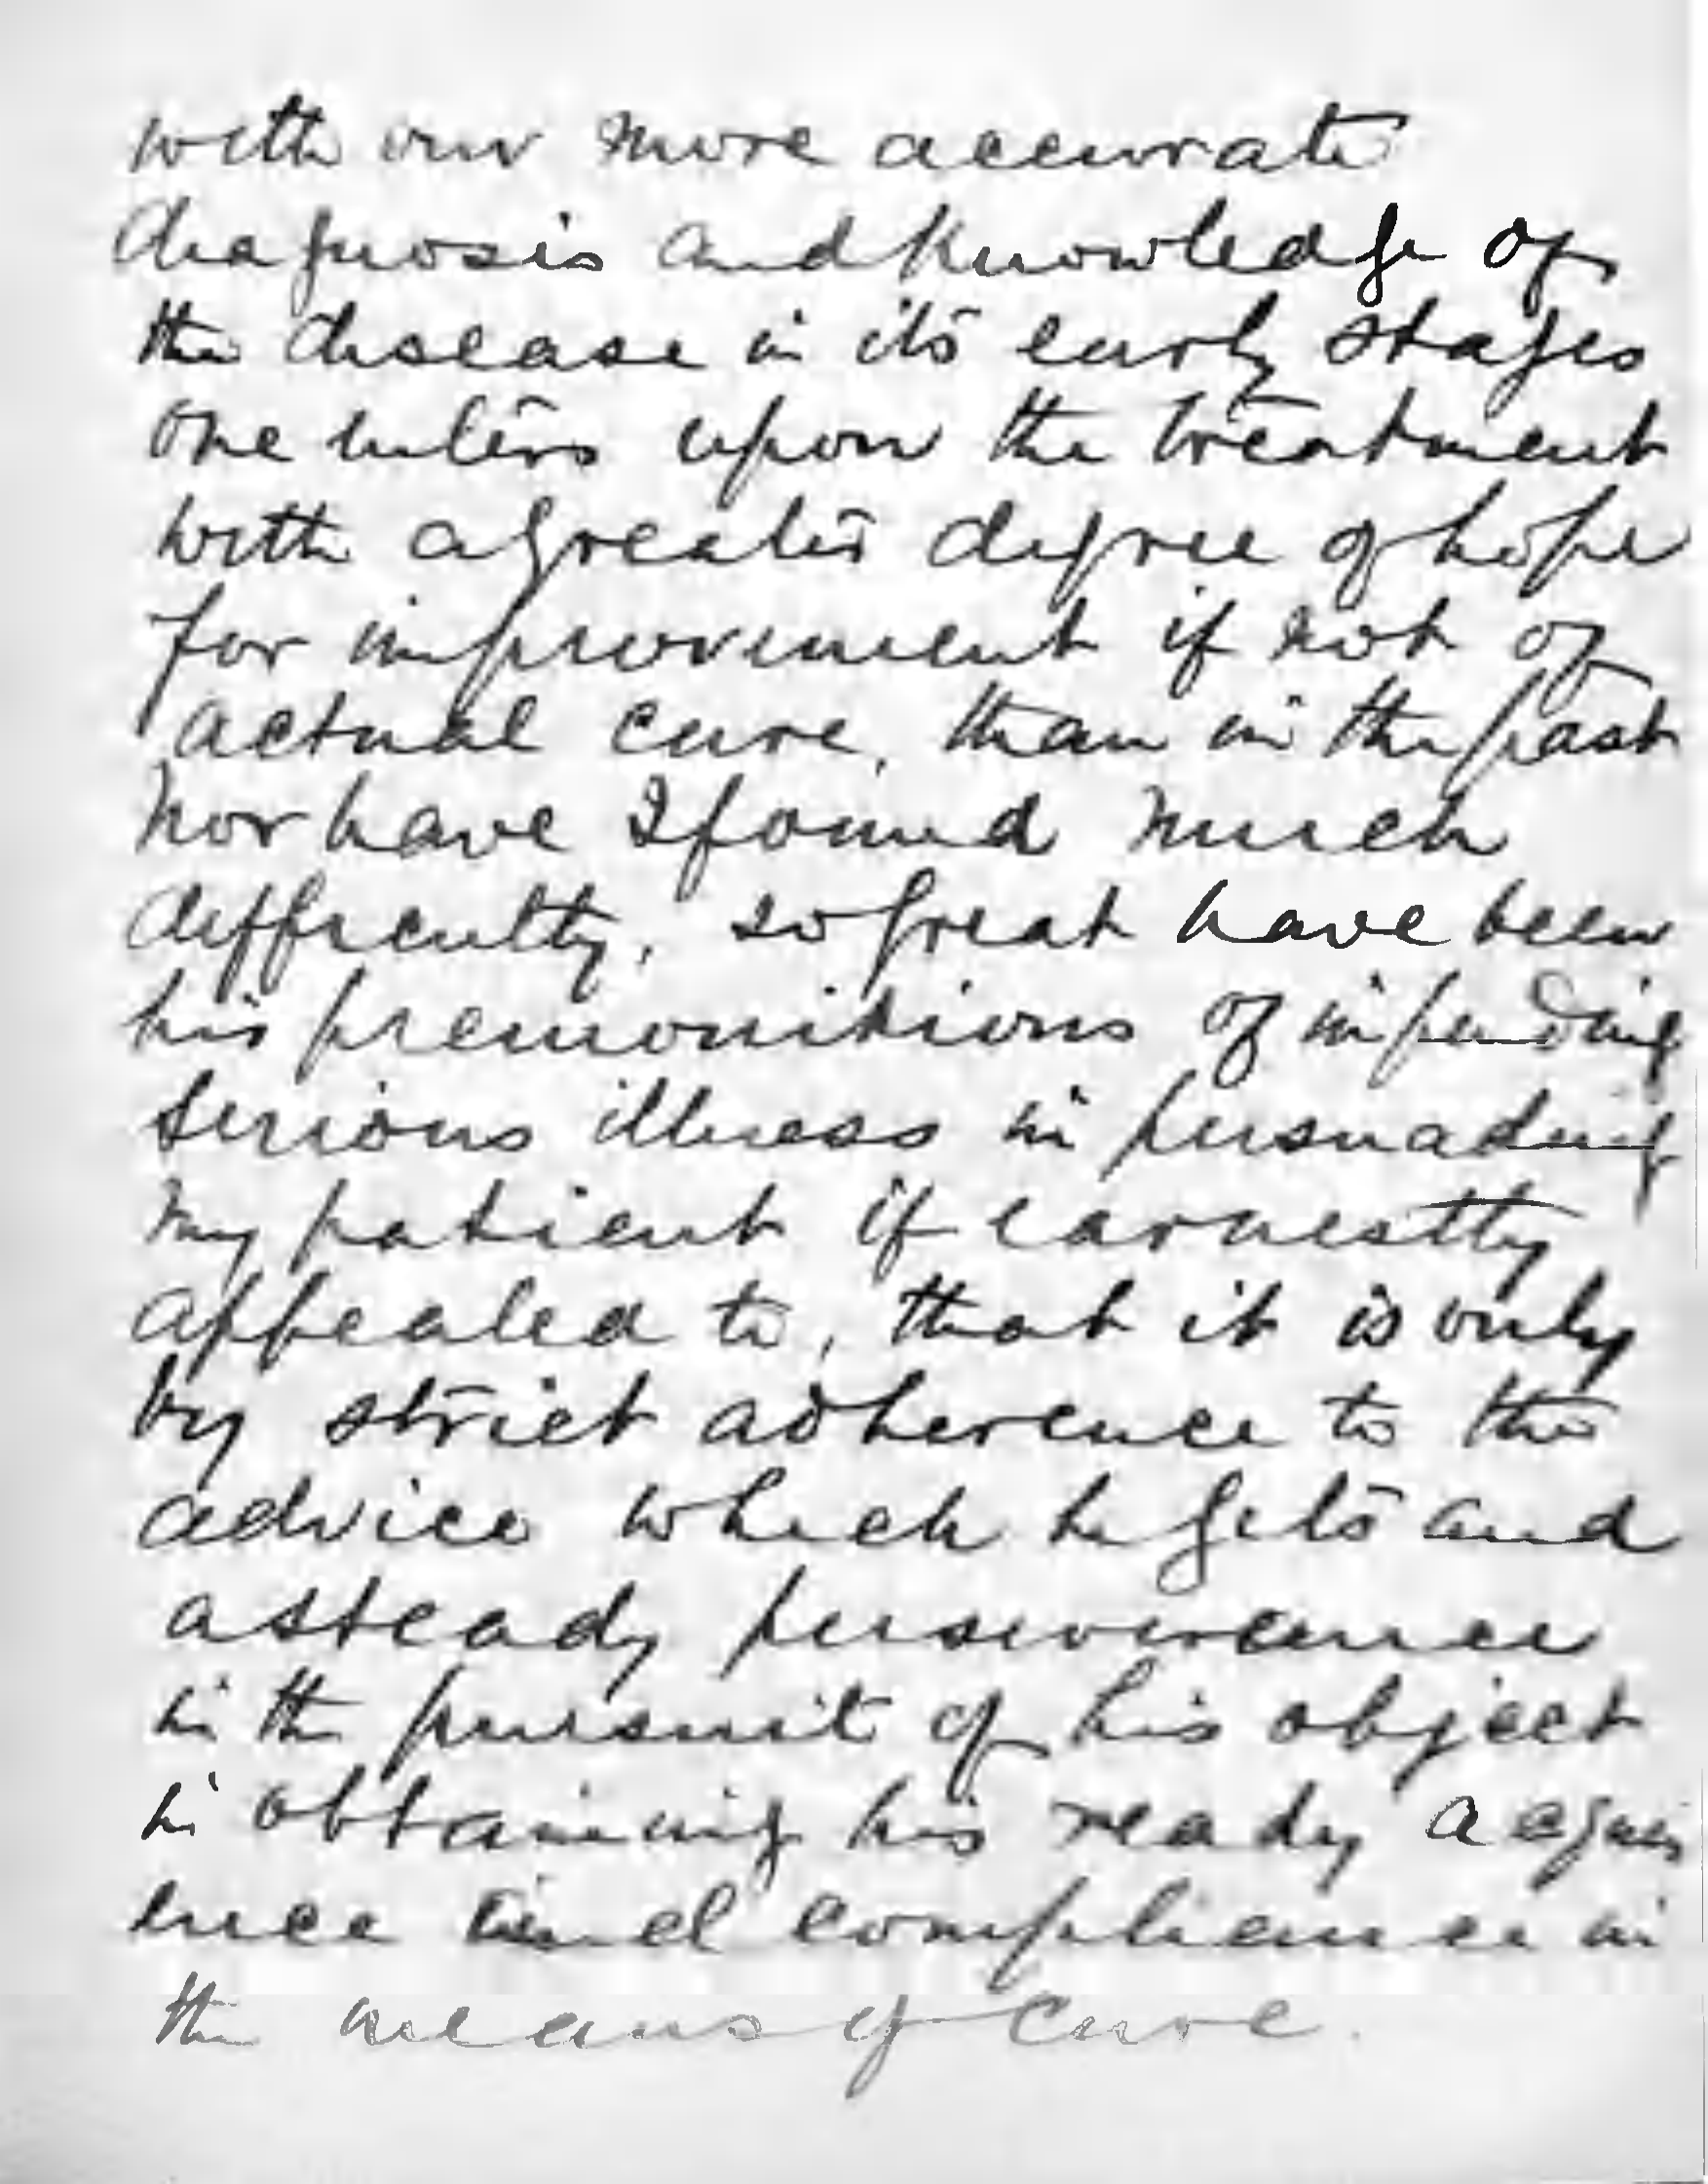 with our more accurate
diagnosis and knowledge of
the disease in its early stages
one enters upon the treatment
with a greater degree of hope
for improvement if not of
actual cure, than in the past
nor have I found much
difficulty, so great have been
his premonitions of impending
serious illness in persuading
my patient if earnestly
appealed to, that it is only
by strict adherence to the
advice which he gets and
a steady perseverance
in the pursuit of his object
in obtaining his ready acquies
ence and compliance in
the means of cure.